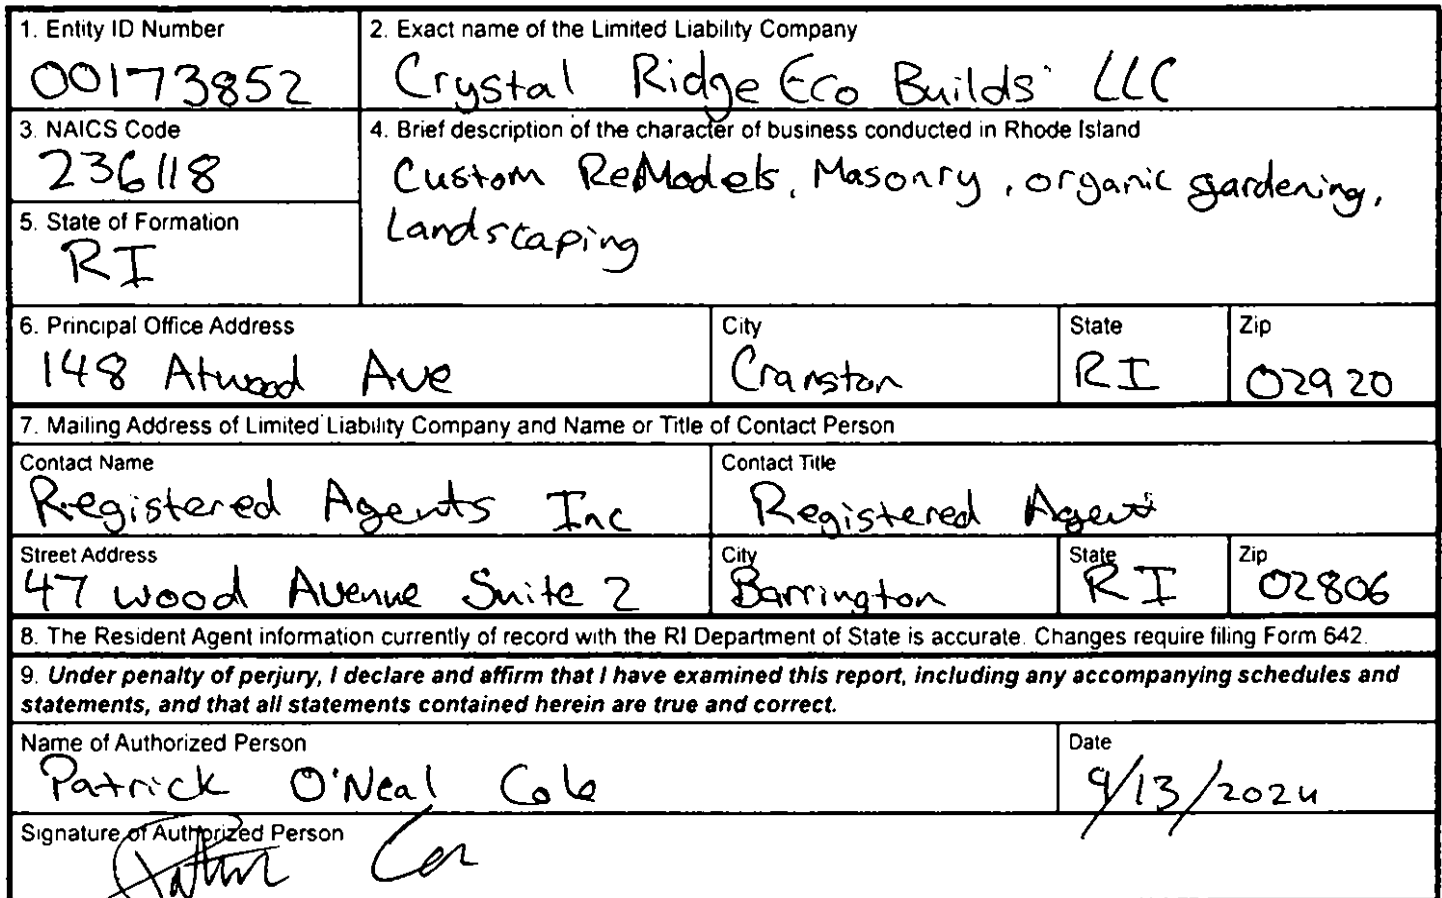 1. Entity ID Number
00173852
2. Exact name of the Limited Liability Company
Crystal Ridge Eco Builds LLC
3. NAICS Code
236118
4. Brief description of the character of business conducted in Rhode Island
Custom ReModels, Masonry, organic gardening,
Landscaping
5. State of Formation
RI
6. Principal Office Address
148 Atwood Ave
City
Cranston
State
RI
Zip
02920
7. Mailing Address of Limited Liability Company and Name or Title of Contact Person
Contact Name
Registered Agents Inc
Contact Title
Registered Agent
Street Address
47 wood Avenue Suite 2
City
Barrington
State
RI
Zip
02806
8. The Resident Agent information currently of record with the RI Department of State is accurate. Changes require filing Form 642.
9. Under penalty of perjury, I declare and affirm that I have examined this report, including any accompanying schedules and
statements, and that all statements contained herein are true and correct.
Name of Authorized Person
Patrick O'Neal Cole
Date
9/13/2024
Signature of Authorized Person